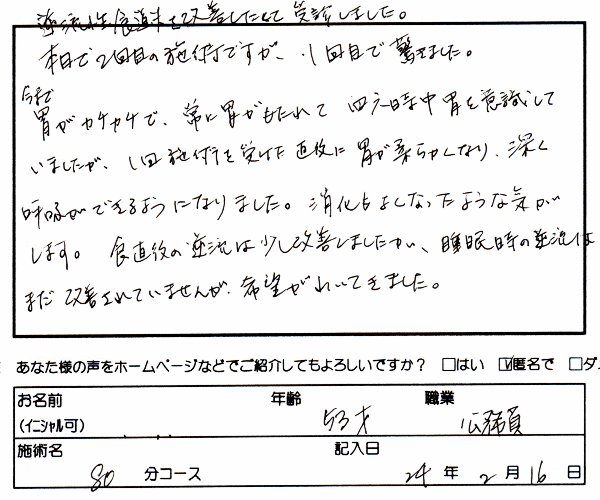 逆流性食道炎を改善したくて受診しました。
本日で2回目の施術ですが、1回目で驚きました。
今まで
胃がカチカチで、常に胃がもたれて 四六時中胃を意識して
いましたが、1回施術を受けた直後に胃が柔らかくなり、深く
呼吸ができるようになりました。消化もよくなったような気が
します。 食直後の逆流は少し改善しましたが、睡眠時の逆流は
まだ改善されていませんが、希望がわいてきました。
あなた様の声をホームページなどでご紹介してもよろしいですか? □はい ☑匿名で □ダ
お名前 年齢 職業
(イニシャル可) 53才 公務員
施術名 記入日
80 分コース 24 年 2 月 16 日